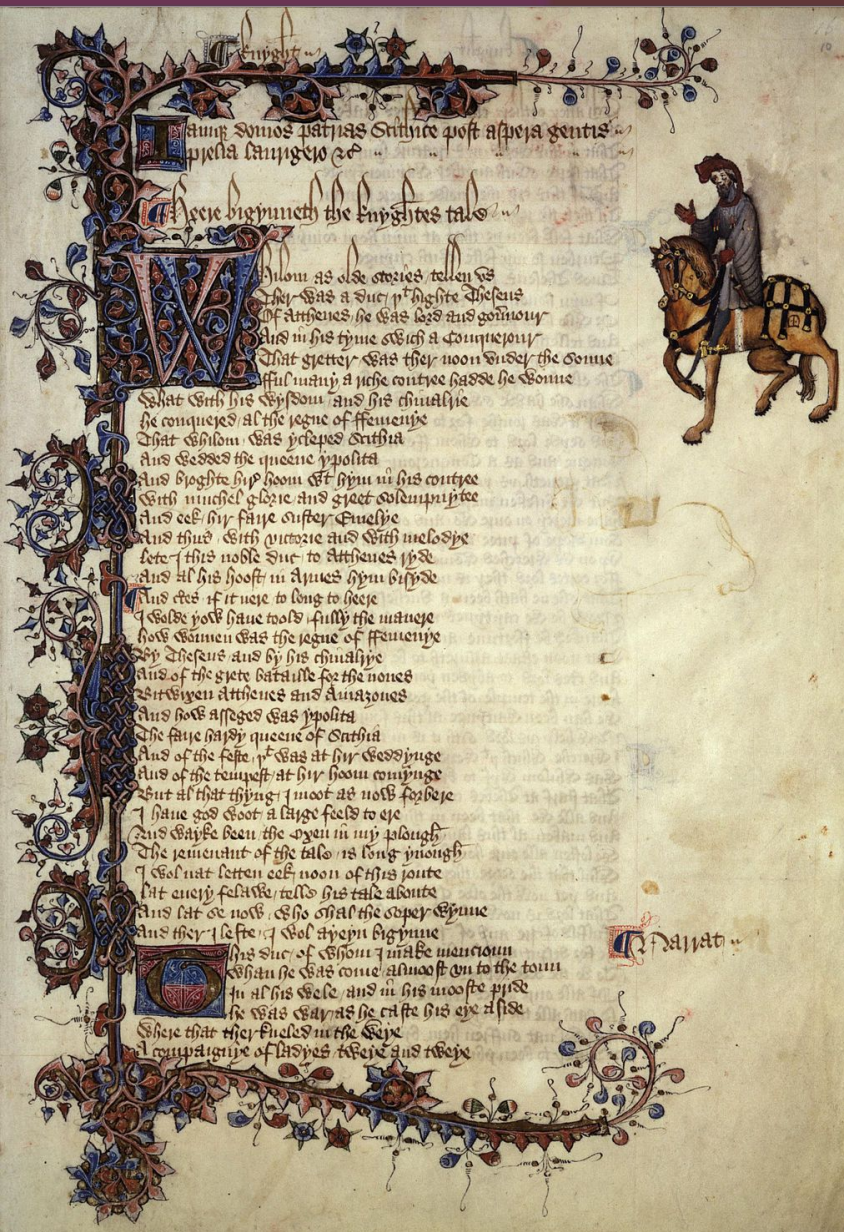 Knyght
Iamq; domos patrias Scithice post aspera gentis
prelia laurigero &c
Heere bigynneth the knyghtes tale
Whilom as olde stories tellen vs
Ther was a duc þt highte Theseus
Of Atthenes he was lord and gouernour
And in his tyme swich a Conquerour
That gretter was ther noon vnder the sonne
fful many a riche contree hadde he wonne
What with his wysdom and his chiualrie
he conquered al the regne of ffemenye
That whilom was ycleped Scithia
And wedded the queene ypolita
And broghte hir hoom wt hym in his contree
With muchel glorie and greet solempnytee
And eek hir faire suster Emelye
And thus with victorie and with melodye
lete I this noble duc to Atthenes ryde
And al his hoost in Armes hym bisyde
And certes if it nere to long to heere
I wolde yow haue toold fully the manere
how wonnen was the regne of ffemenye
By Theseus and by his chiualrye
And of the grete bataille for the nones
Bitwixen Atthenes and Amazones
And how asseged was ypolita
The faire hardy queene of Scithia
And of the feste þt was at hir weddynge
And of the tempest at hir hoom comynge
But al that thyng I moot as now forbere
I haue god woot a large feeld to ere
And wayke been the Oxen in my plough
The remenant of the tale is long ynough
I wol nat letten eek noon of this route
lat euery felawe telle his tale aboute
And lat se now who shal the soper wynne
And ther I lefte I wol ayeyn bigynne
This duc of whom I make mencioun
Whan he was come almoost vn to the toun
In al his wele and in his mooste pride
he was war as he caste his eye aside
Where that ther kneled in the weye
A compaignye of ladyes tweye and tweye
Narrat